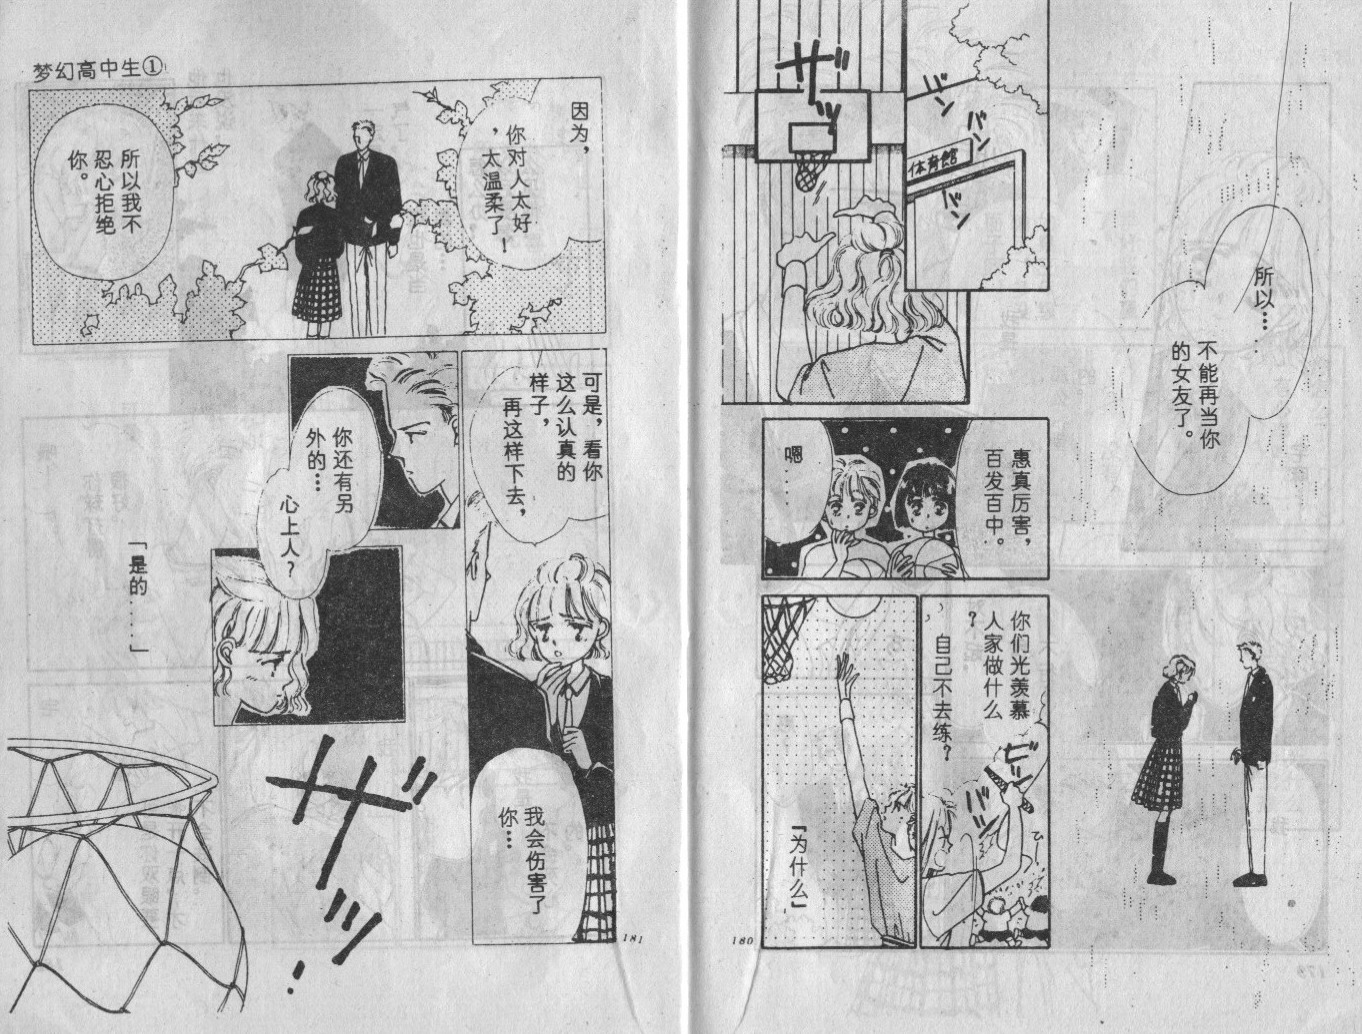 所以…
不能再当你
的女友了。
体育館
バン
バン
バン
ザッ
惠真厉害，
百发百中。
嗯……
你们光羡慕
人家做什么
？
自己不去练？
ビッ
バン
『为什么』
180
梦幻高中生①
因为，
你对人太好
，太温柔了！
所以我不
忍心拒绝
你。
可是，看你
这么认真的
样子，
再这样下去，
我会伤害了
你…
你还有另
外的…
心上人？
「是的……」
ザッ
181
179